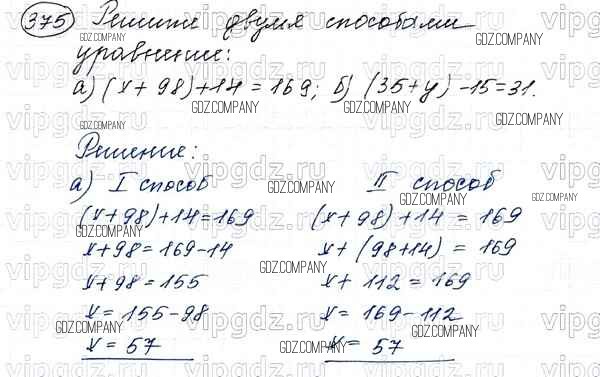 375 Решите двумя способами
уравнение:
а) (x + 98) + 14 = 169; б) (35 + y) - 15 = 31.
Решение:
а) I способ
(x + 98) + 14 = 169
x + 98 = 169 - 14
x + 98 = 155
x = 155 - 98
x = 57
II способ
(x + 98) + 14 = 169
x + (98 + 14) = 169
x + 112 = 169
x = 169 - 112
x = 57
GDZ.COMPANY
vipgdz.ru